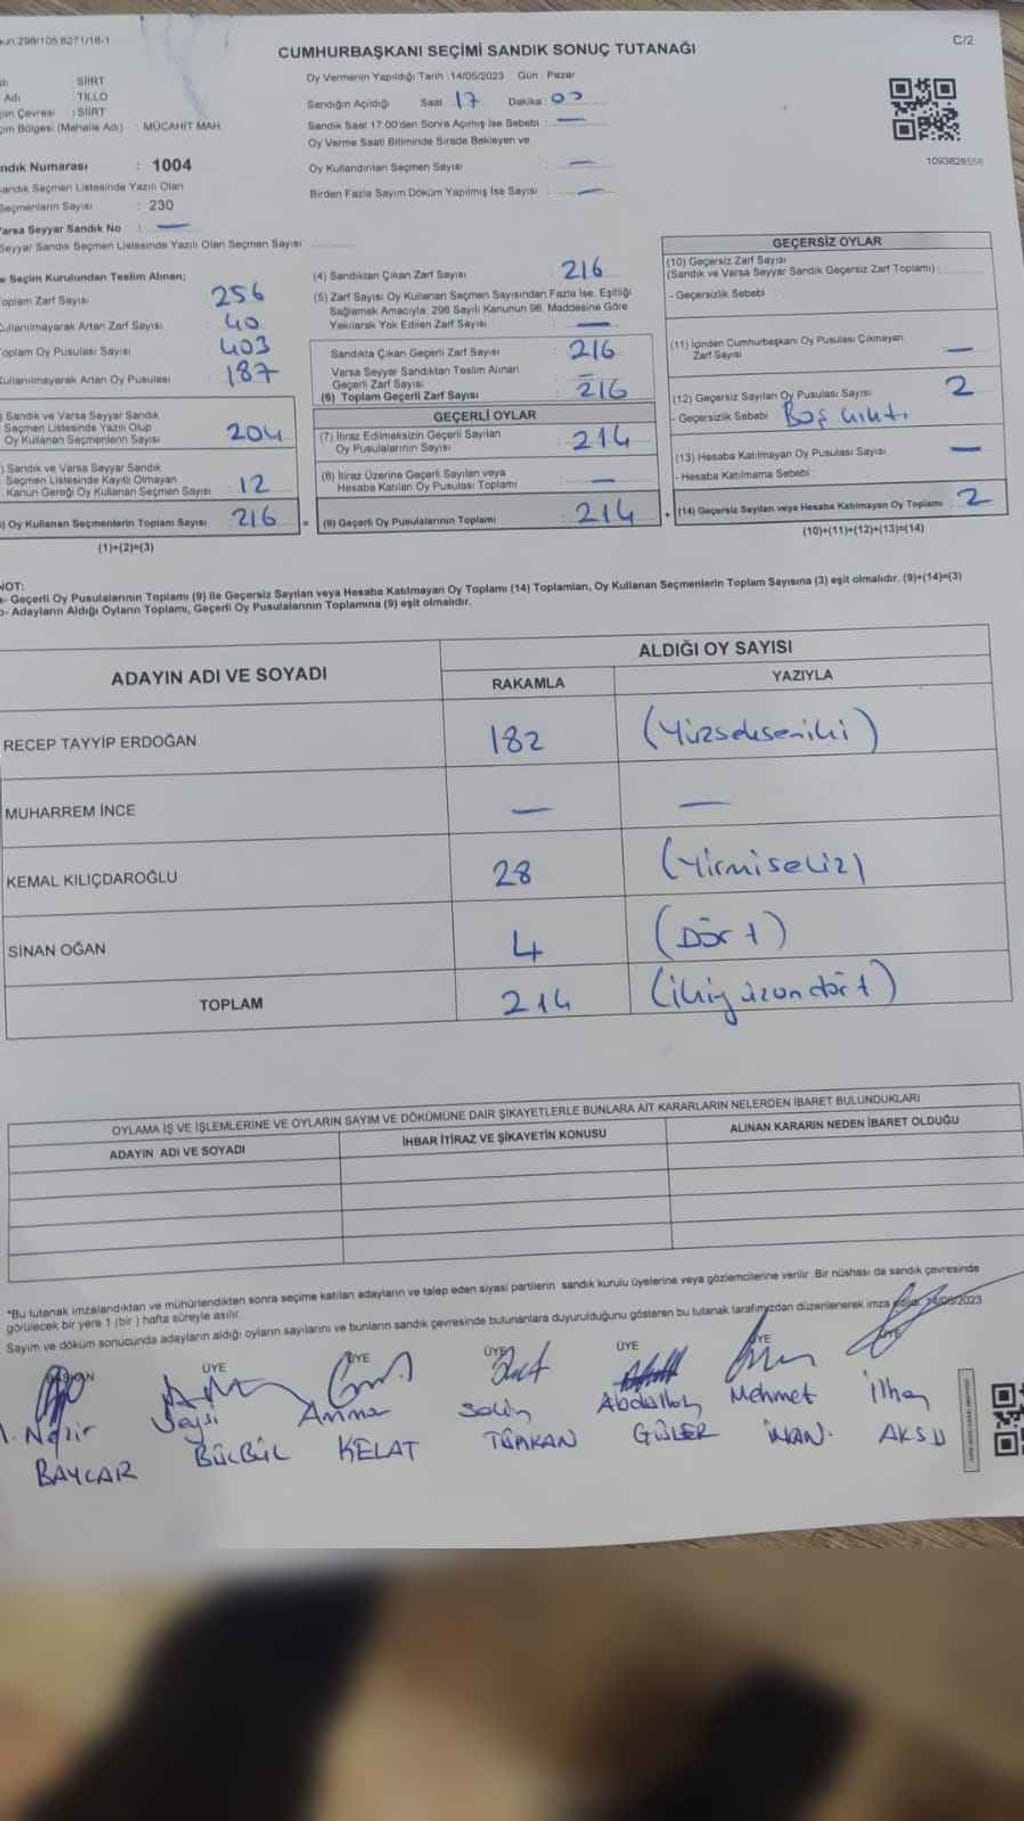 C/2
CUMHURBAŞKANI SEÇİMİ SANDIK SONUÇ TUTANAĞI
SİİRT
Adı TİLLO
Çevresi : SİİRT
Bölgesi (Mahalle Adı) : MÜCAHİT MAH.
Oy Vermenin Yapıldığı Tarih :14/05/2023 Gün : Pazar
Sandığın Açıldığı Saat 17 Dakika :
Sandık Saat 17:00'den Sonra Açılmış İse Sebebi : —
Oy Verme Saati Bitiminde Sırada Bekleyen ve
Oy Kullandırılan Seçmen Sayısı : —
Birden Fazla Sayım Döküm Yapılmış İse Sayısı : —
1093828556
Numarası : 1004
Sandık Seçmen Listesinde Yazılı Olan
Seçmenlerin Sayısı : 230
Varsa Seyyar Sandık No : —
Seyyar Sandık Seçmen Listesinde Yazılı Olan Seçmen Sayısı
Seçim Kurulundan Teslim Alınan;
Toplam Zarf Sayısı 256
Kullanılmayarak Artan Zarf Sayısı 40
Toplam Oy Pusulası Sayısı 403
Kullanılmayarak Artan Oy Pusulası 187
Sandık ve Varsa Seyyar Sandık
Seçmen Listesinde Yazılı Olup
Oy Kullanan Seçmenlerin Sayısı 204
Sandık ve Varsa Seyyar Sandık
Seçmen Listesinde Kayıtlı Olmayan
Kanun Gereği Oy Kullanan Seçmen Sayısı 12
Oy Kullanan Seçmenlerin Toplam Sayısı 216 =
(1)+(2)=(3)
(4) Sandıktan Çıkan Zarf Sayısı 216
(5) Zarf Sayısı Oy Kullanan Seçmen Sayısından Fazla İse, Eşitliği
Sağlamak Amacıyla; 298 Sayılı Kanunun 98. Maddesine Göre
Yakılarak Yok Edilen Zarf Sayısı —
Sandıkta Çıkan Geçerli Zarf Sayısı 216
Varsa Seyyar Sandıktan Teslim Alınan
Geçerli Zarf Sayısı —
(6) Toplam Geçerli Zarf Sayısı 216
GEÇERLİ OYLAR
(7) İtiraz Edilmeksizin Geçerli Sayılan
Oy Pusulalarının Sayısı 214
(8) İtiraz Üzerine Geçerli Sayılan veya
Hesaba Katılan Oy Pusulası Toplamı —
(9) Geçerli Oy Pusulalarının Toplamı 214 +
GEÇERSİZ OYLAR
(10) Geçersiz Zarf Sayısı
(Sandık ve Varsa Seyyar Sandık Geçersiz Zarf Toplamı)
- Geçersizlik Sebebi
(11) İçinden Cumhurbaşkanı Oy Pusulası Çıkmayan
Zarf Sayısı —
(12) Geçersiz Sayılan Oy Pusulası Sayısı 2
- Geçersizlik Sebebi Boş çıktı
(13) Hesaba Katılmayan Oy Pusulası Sayısı —
- Hesaba Katılmama Sebebi
(14) Geçersiz Sayılan veya Hesaba Katılmayan Oy Toplamı 2
(10)+(11)+(12)+(13)=(14)
NOT:
a- Geçerli Oy Pusulalarının Toplamı (9) ile Geçersiz Sayılan veya Hesaba Katılmayan Oy Toplamı (14) Toplamları, Oy Kullanan Seçmenlerin Toplam Sayısına (3) eşit olmalıdır. (9)+(14)=(3)
b- Adayların Aldığı Oyların Toplamı, Geçerli Oy Pusulalarının Toplamına (9) eşit olmalıdır.
ADAYIN ADI VE SOYADI ALDIĞI OY SAYISI
RAKAMLA YAZIYLA
RECEP TAYYİP ERDOĞAN 182 (Yüzsekseniki)
MUHARREM İNCE — —
KEMAL KILIÇDAROĞLU 28 (Yirmisekiz)
SİNAN OĞAN 4 (Dört)
TOPLAM 214 (ikiyüzondört)
OYLAMA İŞ VE İŞLEMLERİNE VE OYLARIN SAYIM VE DÖKÜMÜNE DAİR ŞİKAYETLERLE BUNLARA AİT KARARLARIN NELERDEN İBARET BULUNDUKLARI
ADAYIN ADI VE SOYADI İHBAR İTİRAZ VE ŞİKAYETİN KONUSU ALINAN KARARIN NEDEN İBARET OLDUĞU
*Bu tutanak imzalandıktan ve mühürlendikten sonra seçime katılan adayların ve talep eden siyasi partilerin sandık kurulu üyelerine veya gözlemcilerine verilir. Bir nüshası da sandık çevresinde
görülecek bir yere 1 (bir ) hafta süreyle asılır.
Sayım ve döküm sonucunda adayların aldığı oyların sayılarını ve bunların sandık çevresinde bulunanlara duyurulduğunu gösteren bu tutanak tarafımızdan düzenlenerek imza 14/05/2023
ÜYE ÜYE ÜYE ÜYE ÜYE ÜYE
Nezir Amine Abdullah Mehmet İlhan
BAYLAR BÜLBÜL KELAT GÜLER İNAN. AKSU